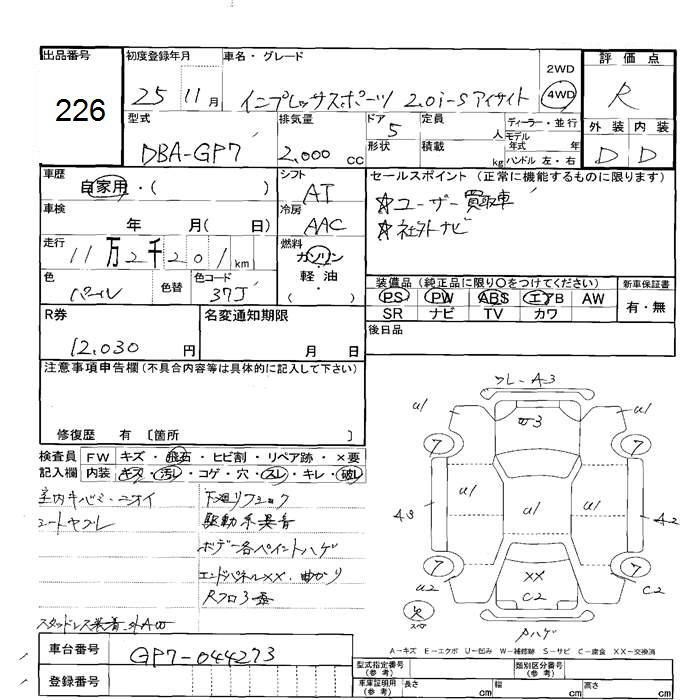 出品番号 初度登録年月 車名・グレード 2WD 評価点
226 25 11月 インプレッサスポーツ 2.0i-S アイサイト 4WD R
型式 排気量 ドア 5 定員 人 ディーラー・並行 外装 内装
モデル
DBA-GP7 2,000 cc 形状 積載 kg 年式 年 D D
ハンドル 左・右
車歴 シフト セールスポイント (正常に機能するものに限ります)
自家用・( ) AT ☆ユーザー買取車
車検 冷房 ☆社外ナビ
年 月( 日) AAC
走行 燃料
11万2千201km ガソリン
軽・油
色 色替 色コード ( )
パール 37J
装備品 (純正品に限り〇をつけてください) 新車保証書
PS PW ABS エアB AW 有・無
SR ナビ TV カワ
R券 名変通知期限 後日品
12,030 円 月 日
注意事項申告欄 (不具合内容等は具体的に記入して下さい)
修復歴 有 〔箇所 〕
検査員 FW キズ・飛石・ヒビ割・リペア跡・×要
記入欄 内装 キズ・汚レ・コゲ・穴・スレ・キレ・破レ
室内キバミ・ニオイ 下廻リフショク
シートヤブレ 駆動系異音
ボデー各ペイントハゲ
エンドパネルXX・曲がり
スタッドレス装着
フレ-A3
U1 U3 U1
7 7
A3 U1 U1 U1 A2
7 7
U2 XX C2
C2
スペア
Pハゲ
A-キズ E-エクボ U-凹み W-補修跡 S-サビ C-腐食 XX-交換済
車台番号 GP7-044273
登録番号
型式指定番号 (参考) 類別区分番号 (参考)
車庫証明用 (参考) 長さ cm 幅 cm 高さ cm